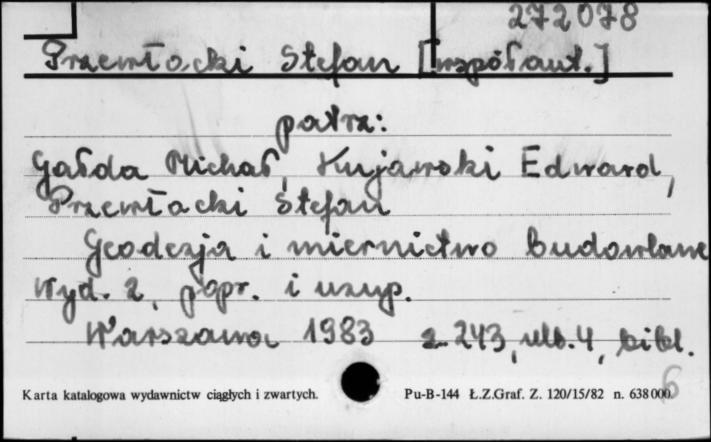 272078
Przewłocki Stefan [współaut.]
patrz:
Gałda Michał, Kujawski Edward,
Przewłacki Stefan
Geodezja i miernictwo budowlane
Wyd. 2, popr. i uzup.
Warszawa 1983 s. 243, nlb. 4, bibl.
6
Karta katalogowa wydawnictw ciągłych i zwartych. Pu-B-144 Ł.Z.Graf. Z. 120/15/82 n. 638 000